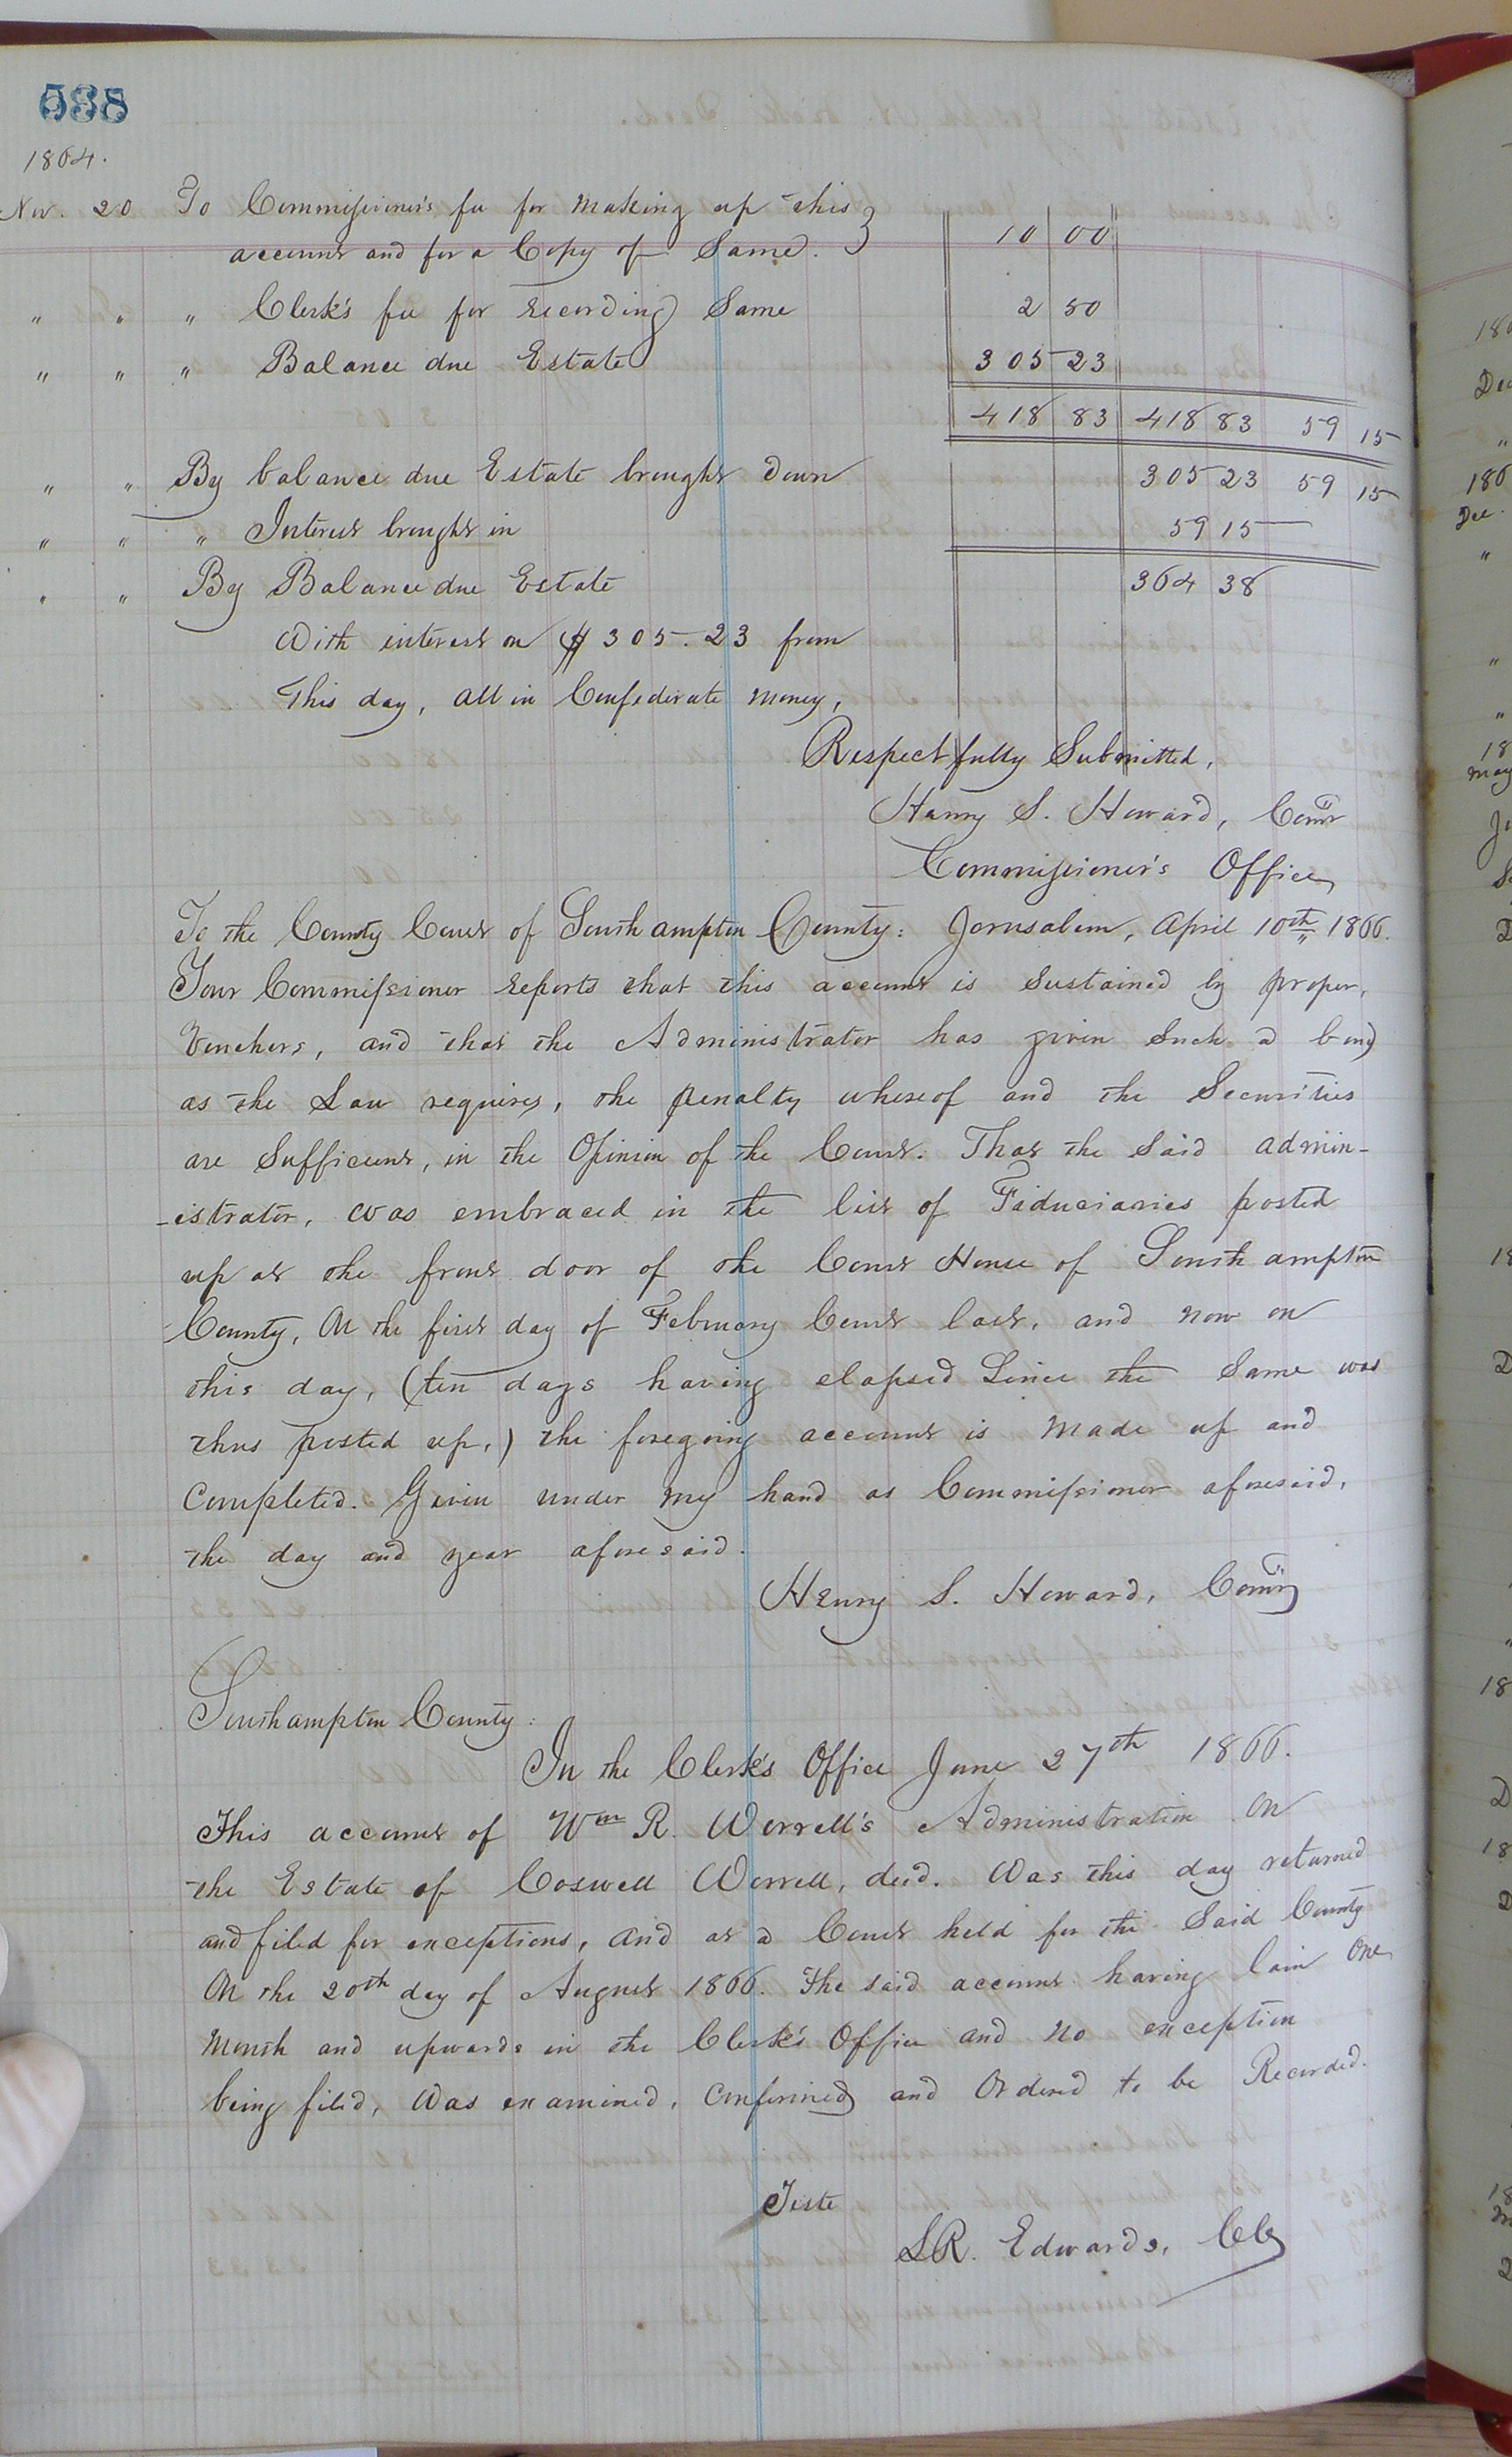 538
1864.
Nov. 20 To Commissioner's fee for making up this }
account and for a Copy of Same. 10 00
" " " Clerk's fee for recording Same 2 50
" " " Balance due Estate 305 23
418 83 418 83 59 15
" " By balance due Estate brought down 305 23 59 15
" " " Interest brought in 59 15
" " By Balance due Estate 364 38
With interest on $305.23 from
This day, all in Confederate money,
Respectfully Submitted,
Henry S. Howard, Comr
Commissioner's Office
To the County Court of Southampton County: Jerusalem, April 10th 1866.
Your Commissioner reports that this account is Sustained by proper,
Vouchers, and that the Administrator has given Such a bond
as the Law requires, the penalty whereof and the Securities
are Sufficient, in the Opinion of the Court. That the Said admin-
-istrator, was embraced in the list of Fiduciaries posted
up at the front door of the Court House of Southampton
County, On the first day of February Court last, and now on
this day, (ten days having elapsed Since the Same was
thus posted up,) the foregoing account is made up and
Completed. Given under my hand as Commissioner aforesaid,
the day and year aforesaid.
Henry S. Howard, Comr
Southampton County:
In the Clerk's Office June 27th 1866.
This account of Wm R. Worrell's Administration On
the Estate of Coswell Worrell, decd. Was this day returned
and filed for exceptions, and at a Court held for the Said County
On the 20th day of August 1866. The said account having lain One
Month and upwards in the Clerk's Office and no exception
being filed, Was examined, Confirmed and Ordered to be Recorded.
Teste
LR. Edwards, Clk